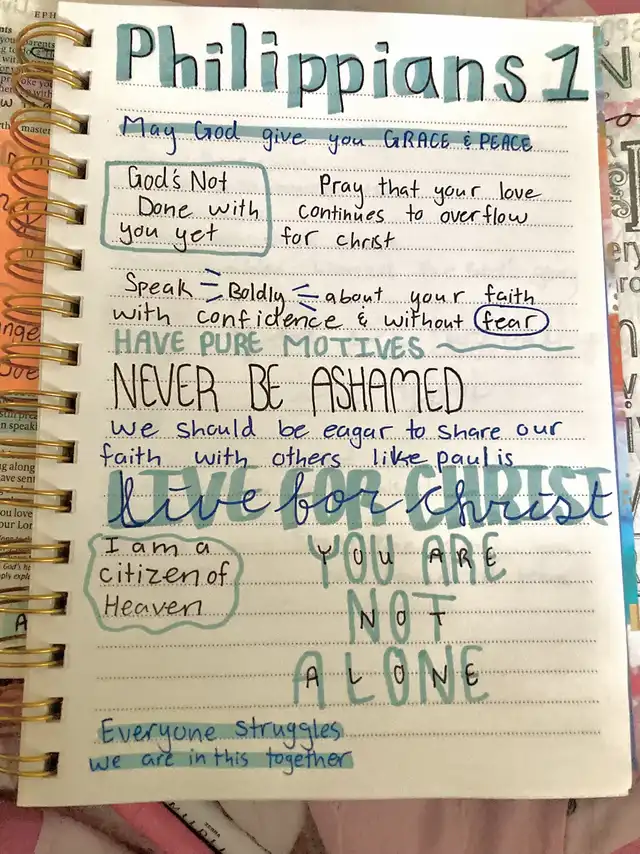 Philippians 1
May God give you GRACE & PEACE
God's Not
Done with
you yet
Pray that your love
continues to overflow
for christ
Speak Boldly about your faith
with confidence & without fear
HAVE PURE MOTIVES
NEVER BE ASHAMED
We should be eagar to share our
faith with others like paul is
LIVE FOR CHRIST
live for christ
I am a
citizen of
Heaven
YOU ARE
NOT
ALONE
Everyone struggles
we are in this together
EPH